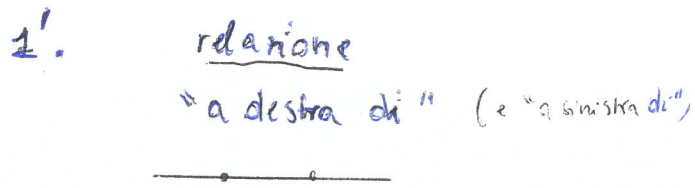 1'. relazione
"a destra di" (e "a sinistra di")